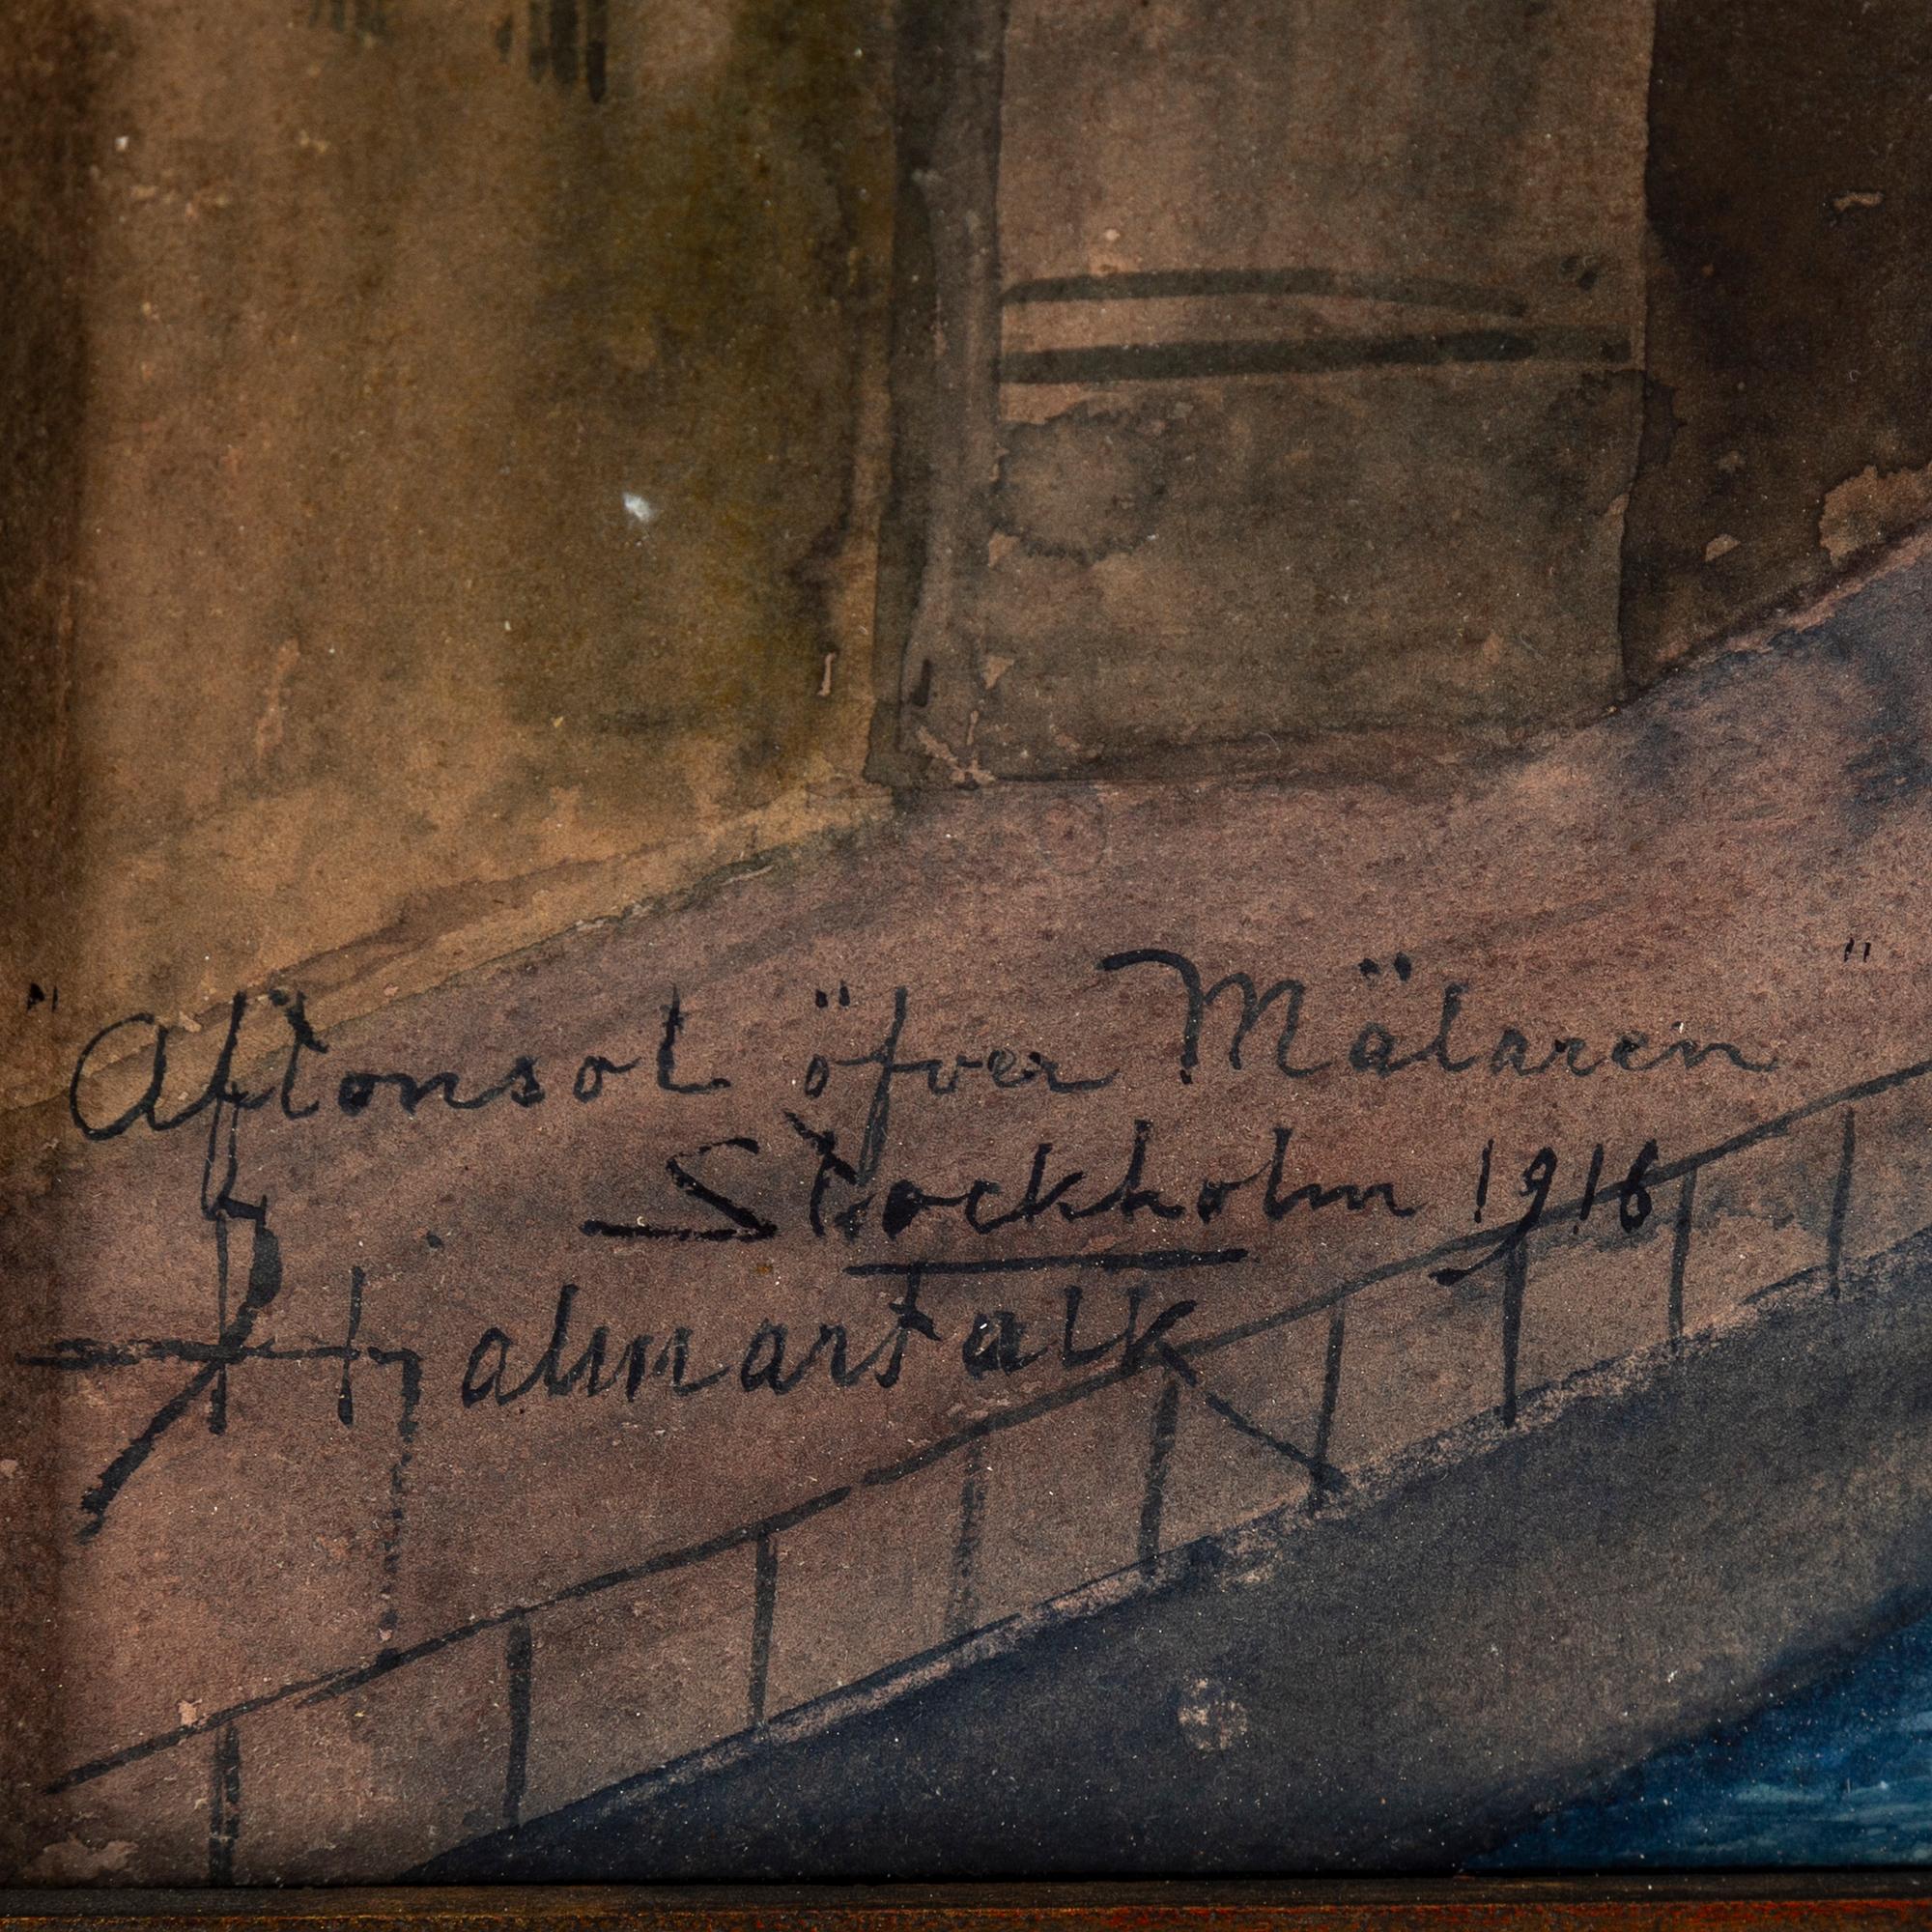 "Aftonsol öfver Mälaren"
Stockholm 1916
Hjalmar Falk